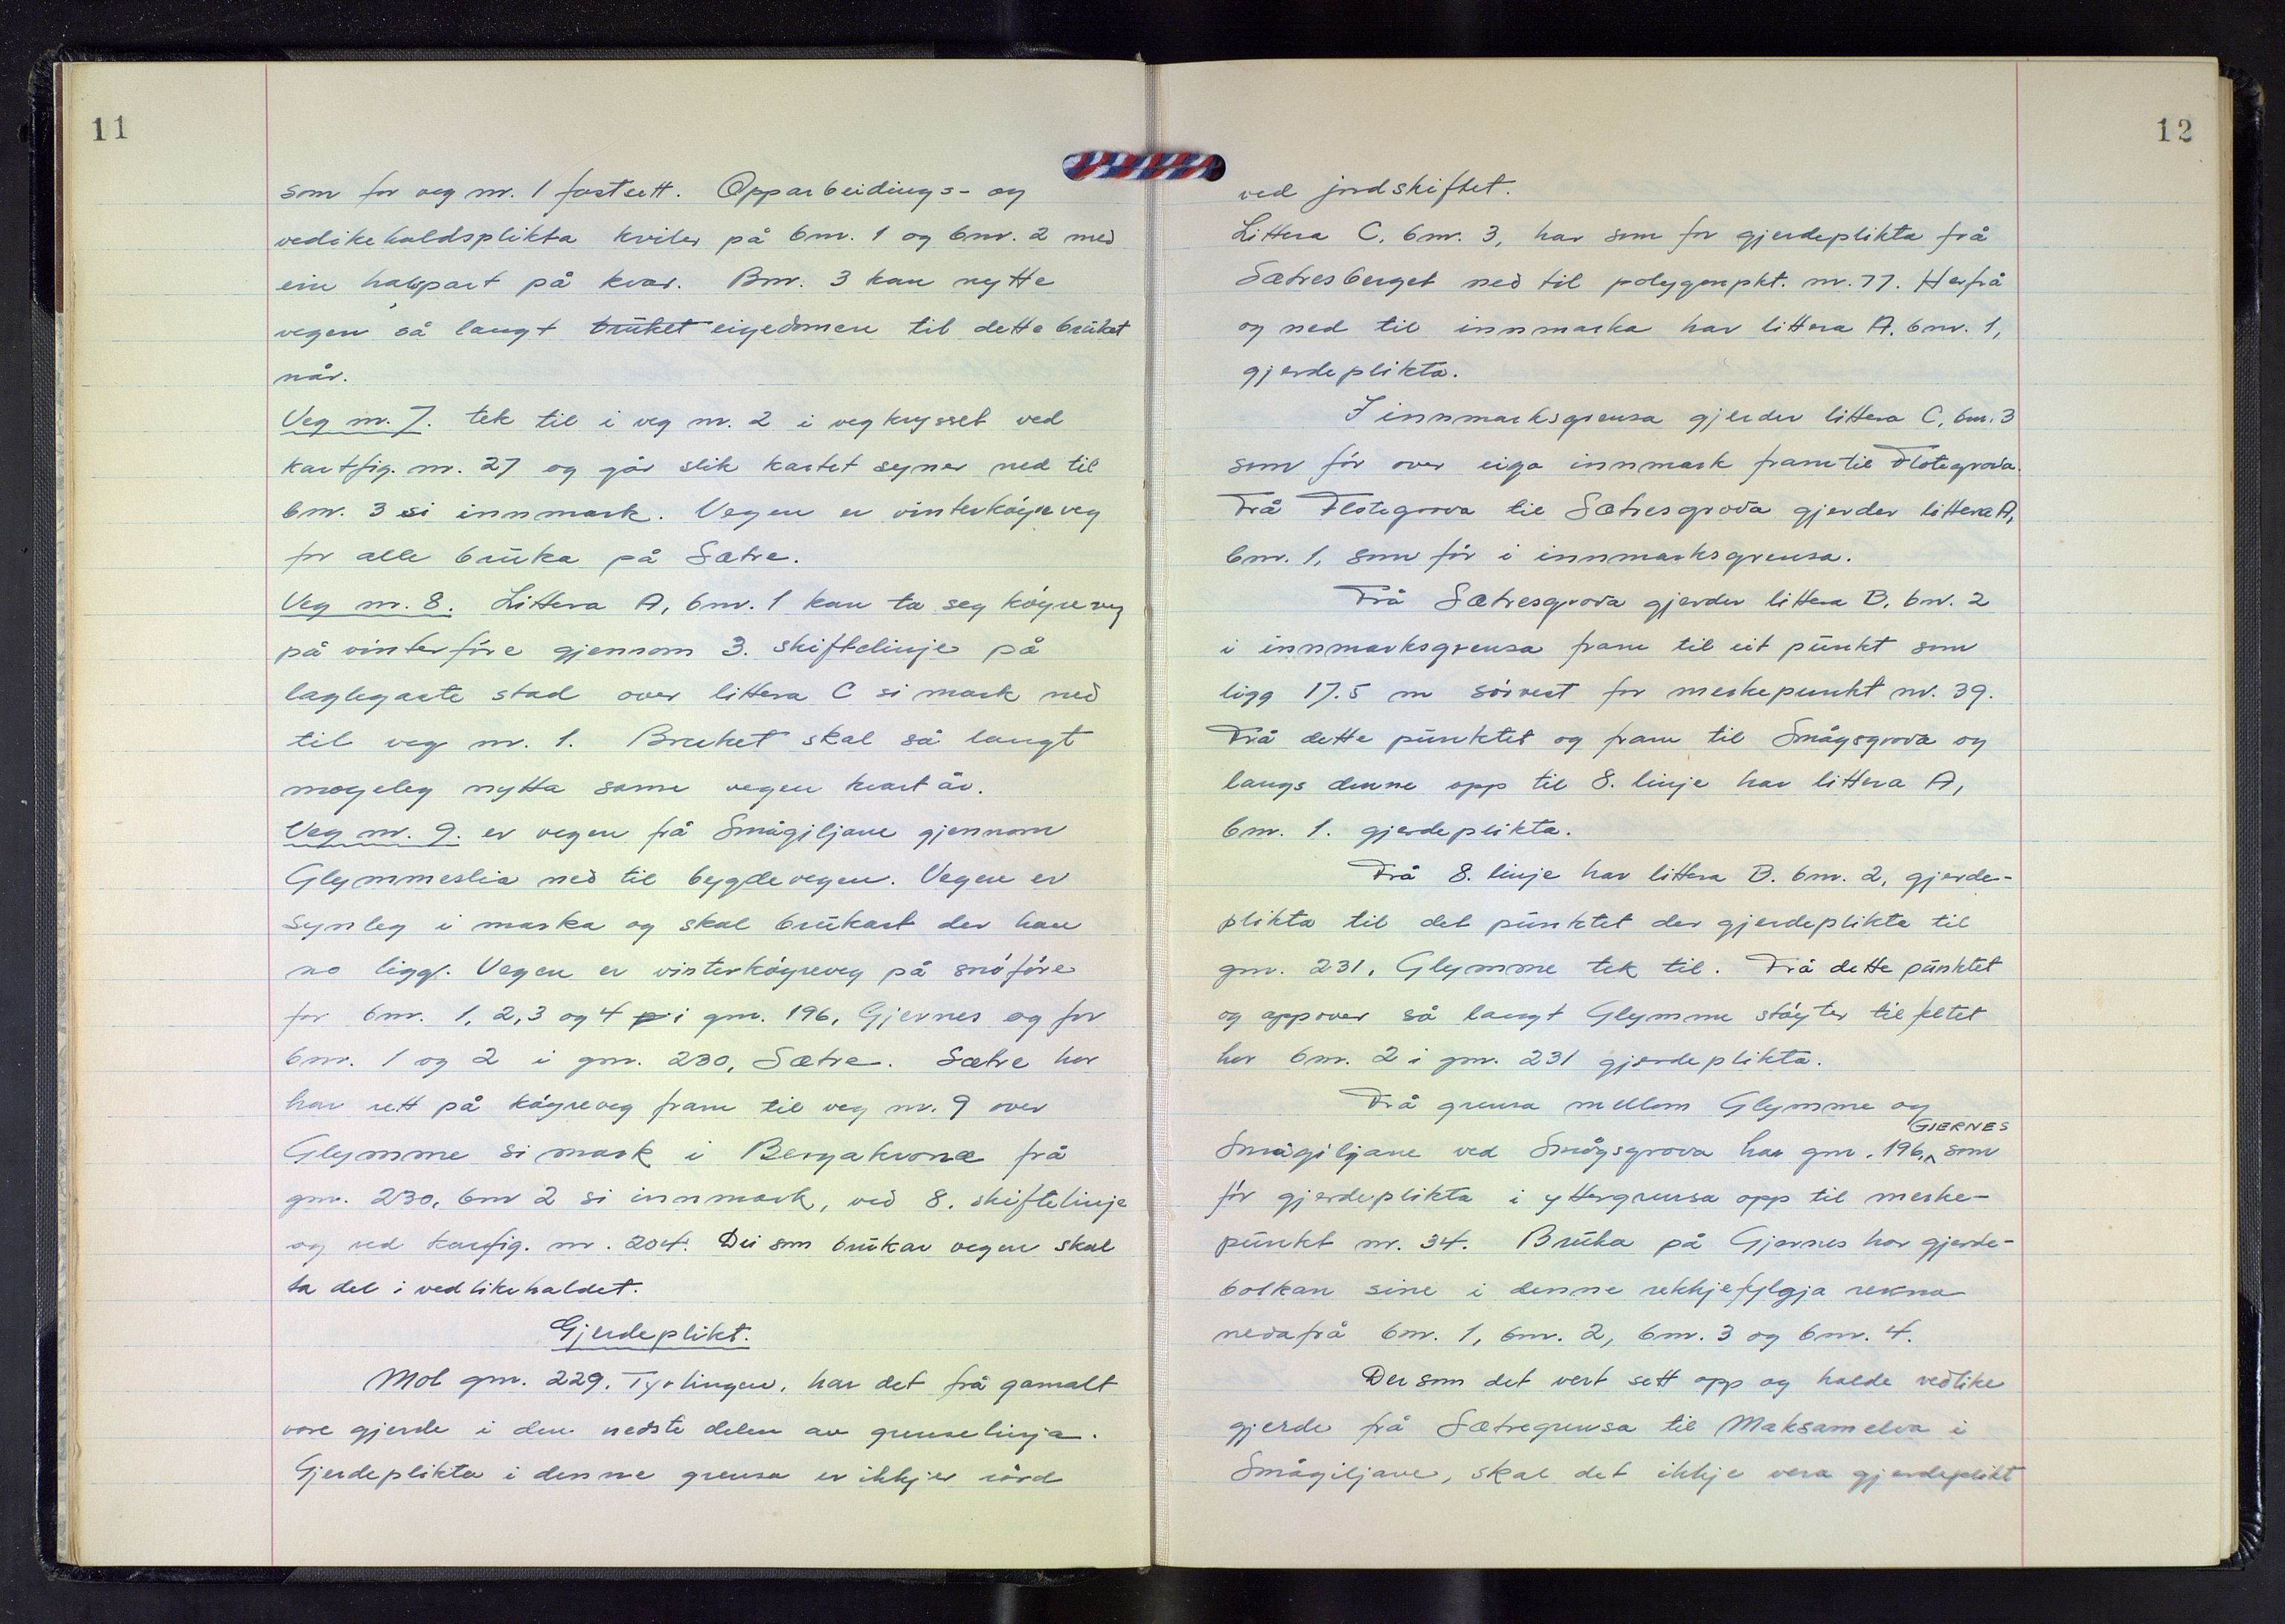 11
som for veg nr. 1 fastsett. Opparbeidings- og
vedikehaldsplikta kviler på bnr. 1 og bnr. 2 med
ein halvpart på kvar. Bnr. 3 kan nytte
vegen så langt bruket eigedomen til dette bruket
når.
Veg nr. 7. tek til i veg nr. 2 i vegkrysset ved
kartfig. nr. 27 og går slik kartet syner ned til
bnr. 3 si innmark. Vegen er vinterköyreveg
for alle bruka på Sætre.
Veg nr. 8. Littera A, bnr. 1 kan ta seg köyreveg
på vinterföre gjennom 3. skiftelinje på
laglegaste stad over littera C si mark ned
til veg nr. 1. Bruket skal så langt
mogeleg nytta same vegen kvart år.
Veg nr. 9. er vegen frå Smågiljane gjennom
Glymmeslia ned til bygdevegen. Vegen er
synleg i marka og skal brukast der han
no ligg. Vegen er vinterköyreveg på snöföre
for bnr. 1, 2, 3 og 4 p i gnr. 196, Gjernes og for
bnr. 1 og 2 i gnr. 230, Sætre. Sætre har
har rett på köyreveg fram til veg nr. 9 over
Glymme si mark i Bergakvona frå
gnr. 230, bnr 2 si innmark, ved 8. skiftelinje
og ved kartfig. nr. 204. Dei som brukar vegen skal
ta del i vedlikehaldet.
Gjerdeplikt.
Mot gnr. 229, Tyrlingen, har det frå gamalt
vore gjerde i den nedste delen av grenselinja.
Gjerdeplikta i denne grensa er ikkje rörd
12
ved jordskiftet.
Littera C, bnr. 3, har som för gjerdeplikta frå
Sætresberget ned til polygonpkt. nr. 77. Herfrå
og ned til innmarka har littera A, bnr. 1,
gjerdeplikta.
I innmarksgrensa gjerder littera C, bnr. 3
som för over eiga innmark fram til Flotegrova.
Frå Flotegrova til Sætresgrova gjerder littera A,
bnr. 1, som för i innmarksgrensa.
Frå Sætresgrova gjerder littera B, bnr. 2
i innmarksgrensa fram til eit punkt som
ligg 17.5 m sörvest for merkepunkt nr. 39.
Frå dette punktet og fram til Smågsgrova og
langs denne opp til 8. linje har littera A,
bnr. 1. gjerdeplikta.
Frå 8. linje har littera B. bnr. 2, gjerde-
plikta til det punktet der gjerdeplikta til
gnr. 231, Glymme tek til. Frå dette punktet
og oppover så langt Glymme stöyter til feltet
har bnr. 2 i gnr. 231 gjerdeplikta.
Frå grensa mellom Glymme og
GJERNES
Smågiljane ved Smågsgrova har gnr. 196, som
för gjerdeplikta i yttergrensa opp til merke-
punkt nr. 34. Bruka på Gjernes har gjerde-
bolkan sine i denne rekkjefylgja rekna
nedafrå bnr. 1, bnr. 2, bnr. 3 og bnr. 4.
Dersom det vert sett opp og halde vedlike
gjerde frå Sætregrensa til Maksamelva i
Smågiljane, skal det ikkje vera gjerdeplikt